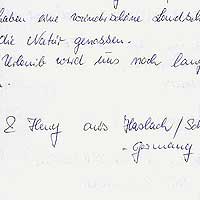 haben eine wunderschöne Landsch
die Natur genossen.
Urlaub wird uns noch lang
.
& Heny aus Haslach/Sc
- Germany